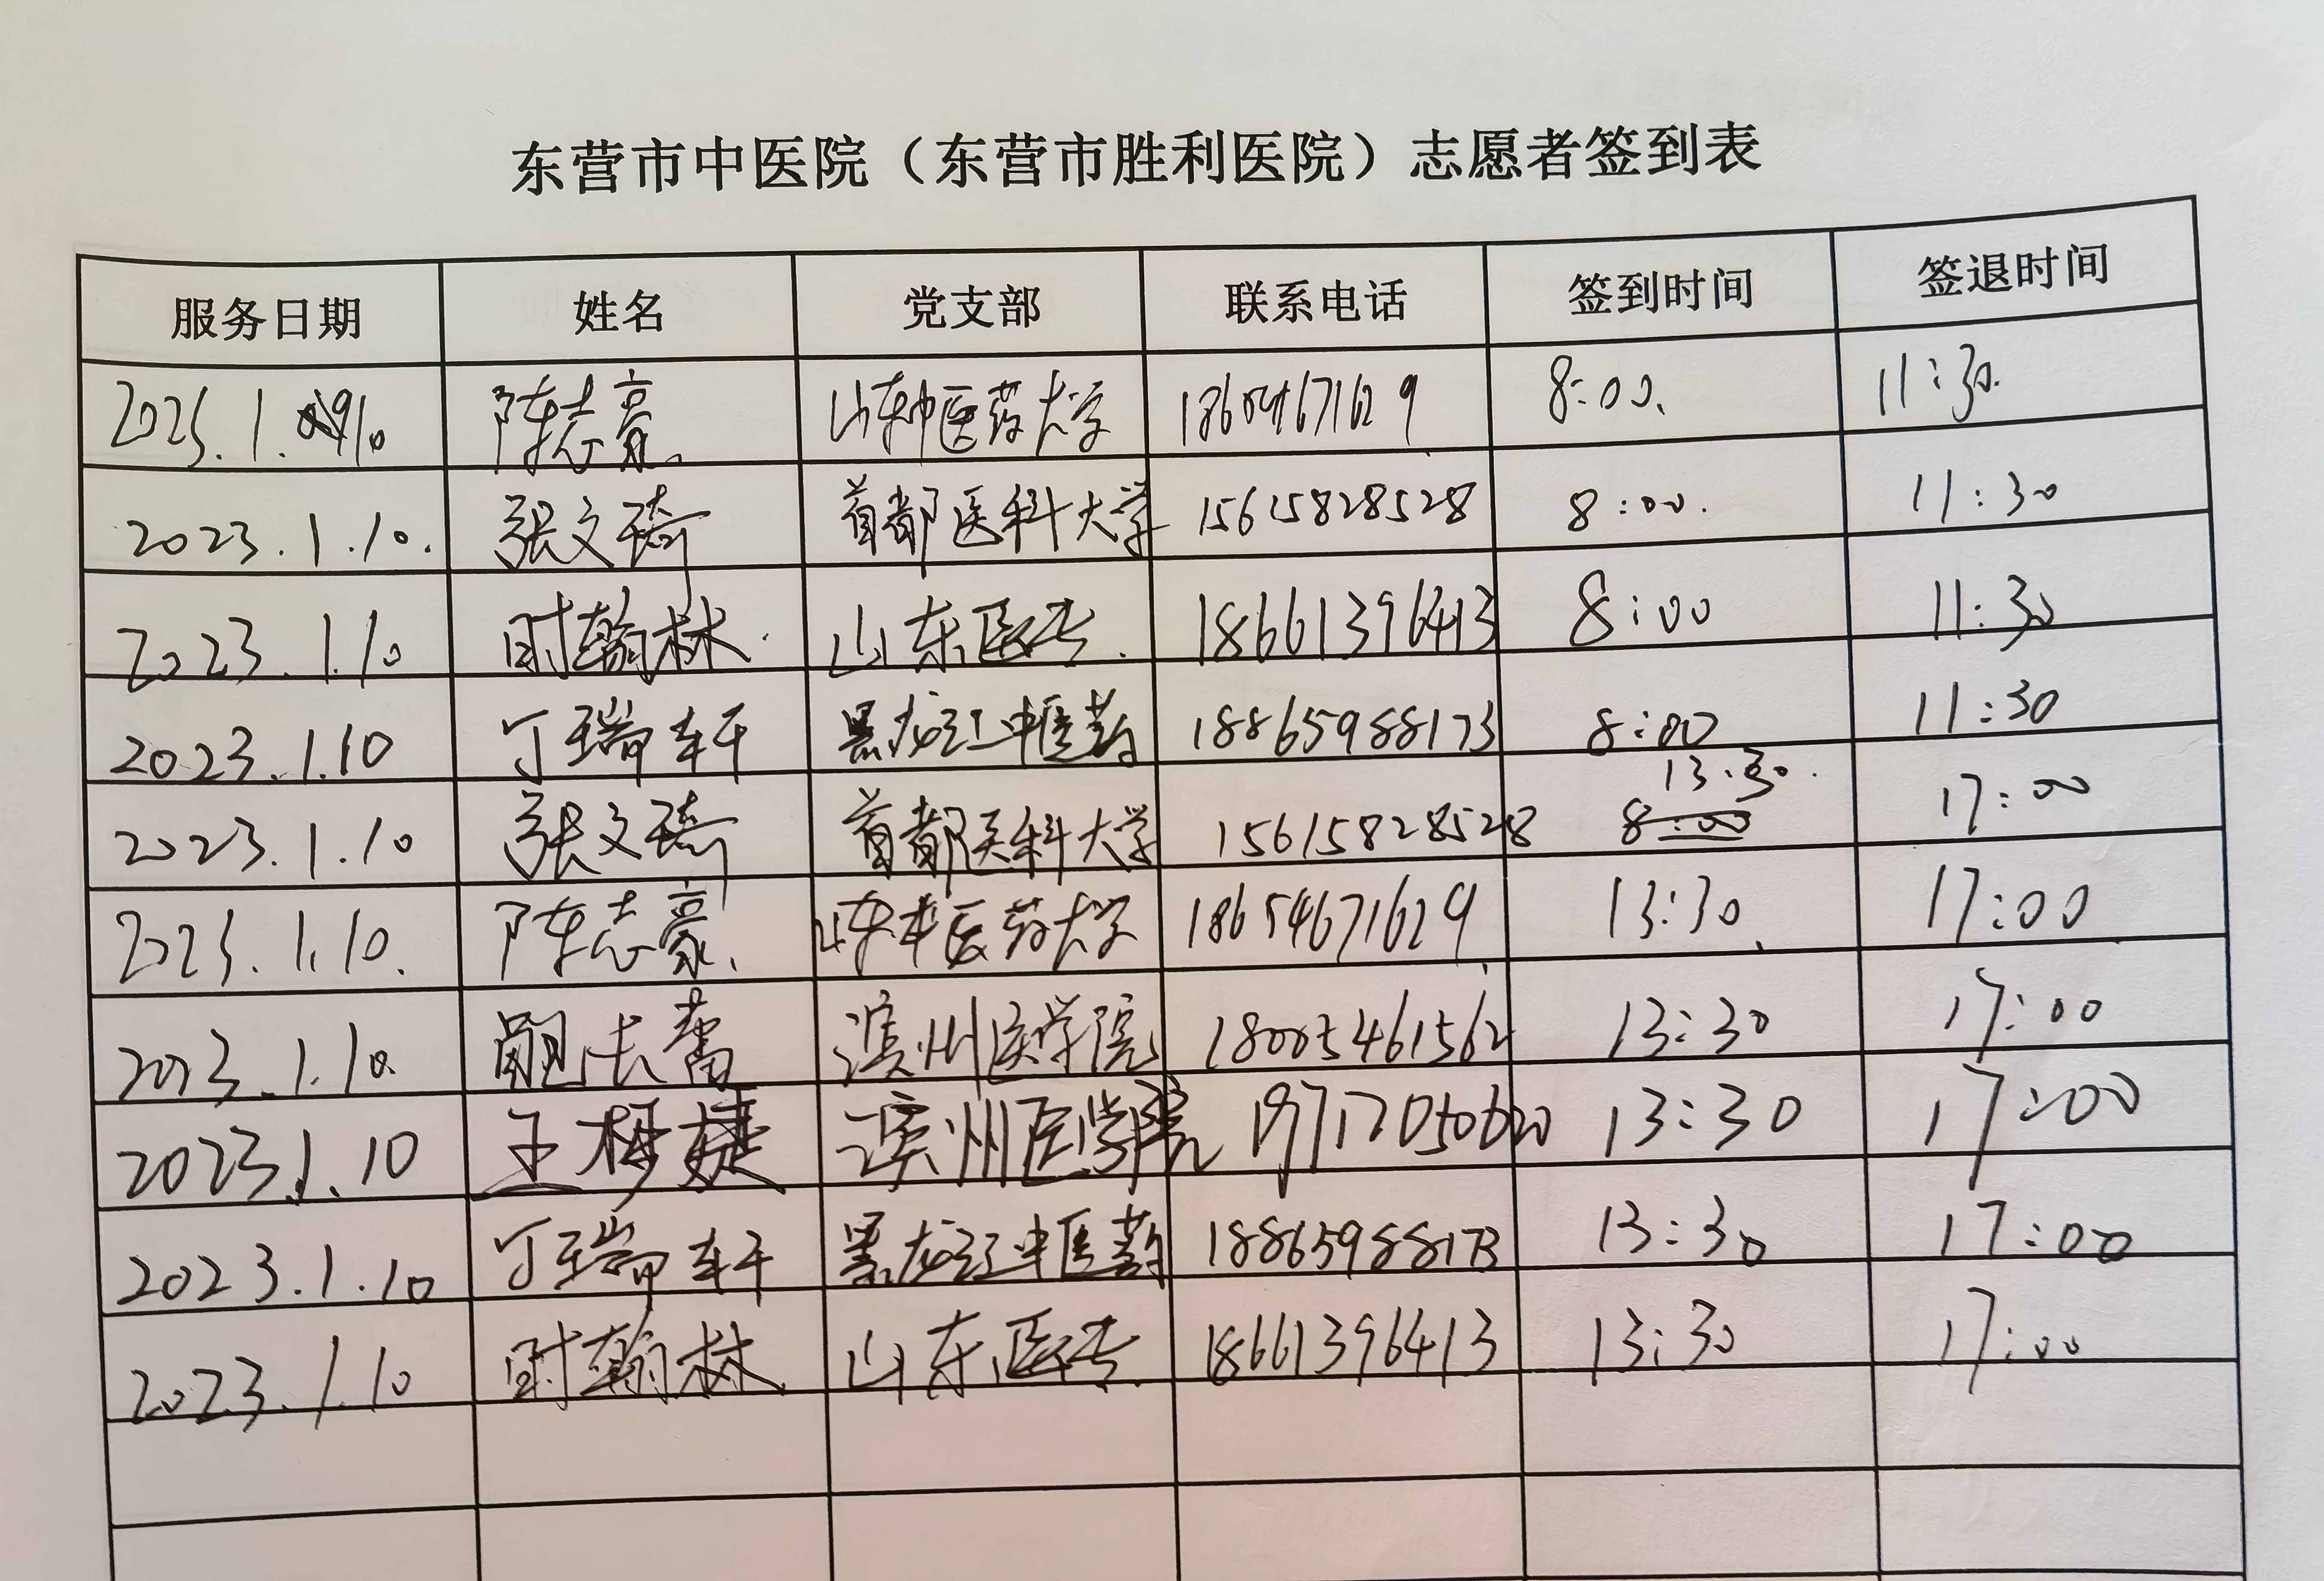 东营市中医院（东营市胜利医院）志愿者签到表
服务日期 姓名 党支部 联系电话 签到时间 签退时间
2023.1.10 陈志豪 山东中医药大学 18654671629 8:00 11:30
2023.1.10. 张文琦 首都医科大学 15615828528 8:00. 11:30
2023.1.10 时翰林 山东医专 18661396413 8:00 11:30
2023.1.10 丁瑞轩 黑龙江中医药 18865988173 8:00 11:30
2023.1.10 张文琦 首都医科大学 15615828528 13:30 17:00
8:00
2023.1.10. 陈志豪 山东中医药大学 18654671629 13:30 17:00
2023.1.10. 蕾 滨州医学院 18005461562 13:30 17:00
2023.1.10 王梦婕 滨州医学院 13:30 17:00
2023.1.10 丁瑞轩 黑龙江中医药 18865988173 13:30 17:00
2023.1.10 时翰林 山东医专 18661396413 13:30 17:00